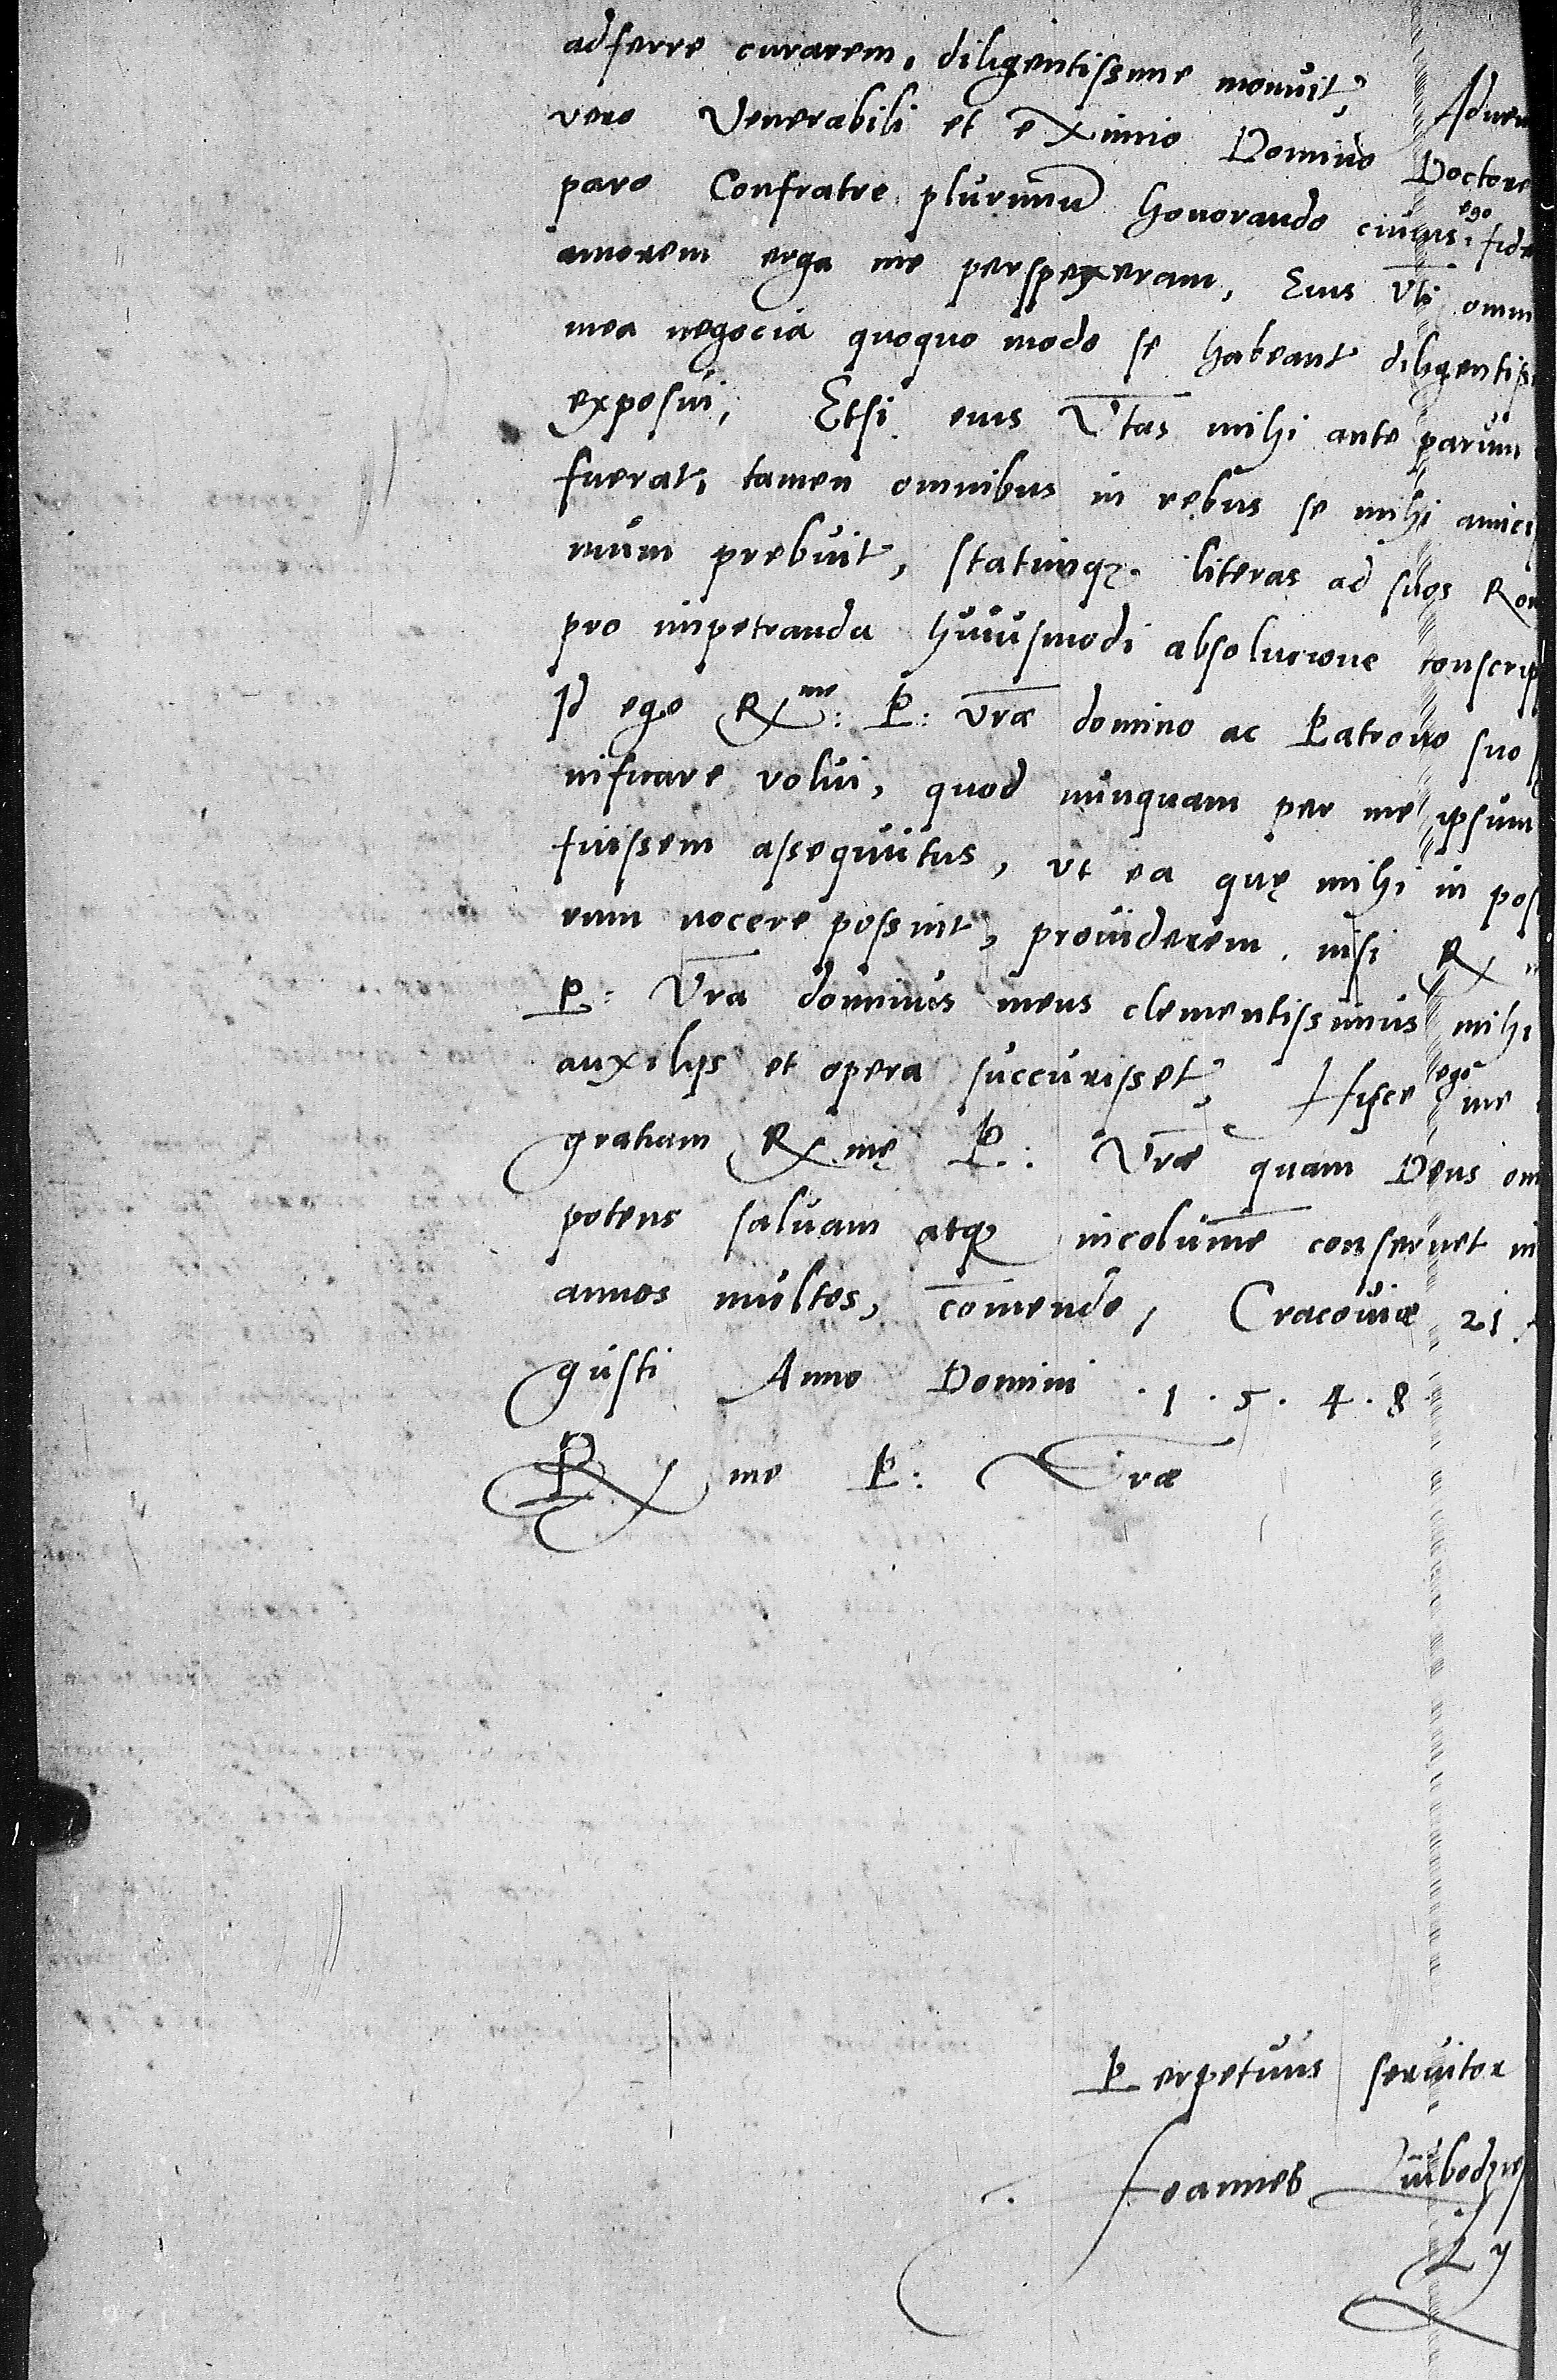 adferre curarem, diligentissime monuit,
vero Venerabili et eximio Domino Doctore
paro Confratre plurimũ honorando cuius ego fide
amorem erga me perspexeram, Eius Vti omn
mea negocia quoquo modo se habeant diligentiss
exposui, Etsi eius Vtas mihi ante parum
fuerat, tamen omnibus in rebus se mihi amicis
mum prebuit, statimqȝ literas ad suos Rom
pro impetranda huiusmodi absolucione conscrip
Id ego Rme: P: vrae domino ac Patrono suo
nificare volui, quod nunquam per me ipsum
fuissem assequutus, vt ea quę mihi in pos
rum nocere possint, prouiderem, nisi R
P: Vra dominus meus clementissimus mihi
auxilijs et opera succurisset, Hisce ego me
gratiam R mę P: Vrae quam Deus om
potens saluam atqȝ incolumẽ conseruet in
annos multos, com̃endo, Cracouiæ 21.
gusti Anno Domini .1.5.4.8
R me P: Vrae
Perpetuus seruitor
Joannes Lubodzie